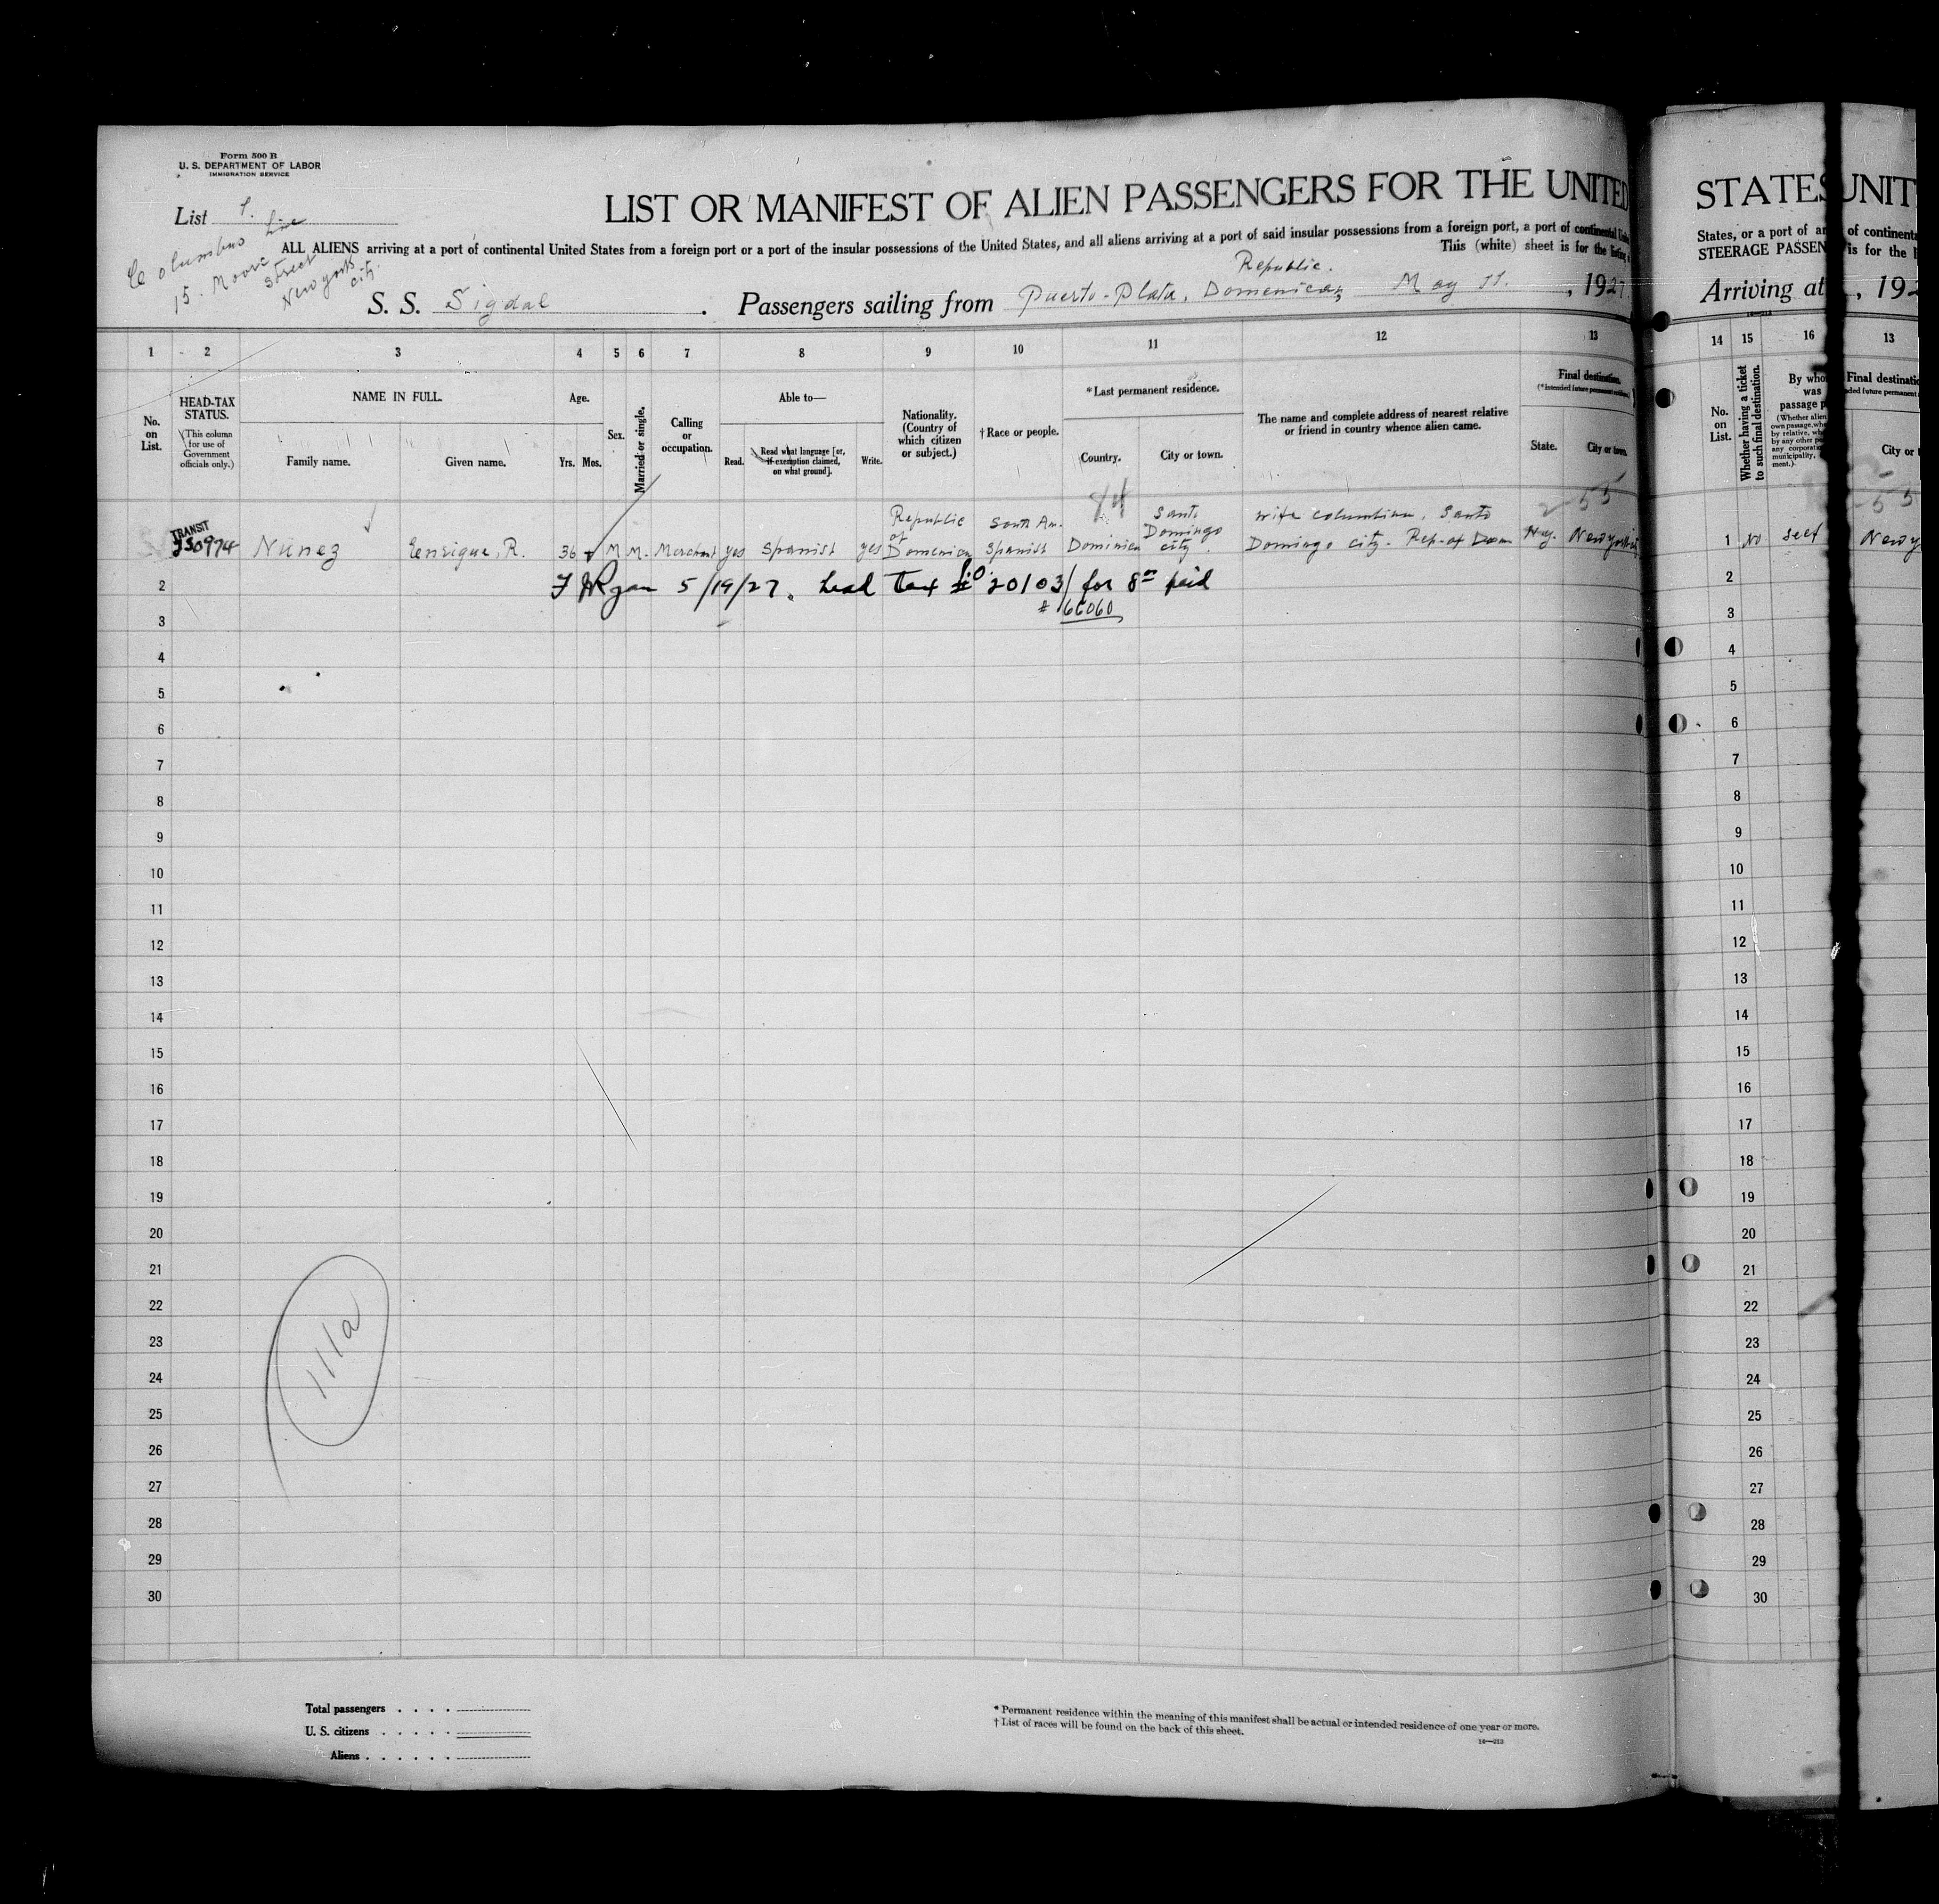 Form 500 B
U. S. DEPARTMENT OF LABOR
IMMIGRATION SERVICE
List 1.
Columbus Line
15. Moore Street
New york
city.
LIST OR MANIFEST OF ALIEN PASSENGERS FOR THE UNITED
ALL ALIENS arriving at a port of continental United States from a foreign port or a port of the insular possessions of the United States, and all aliens arriving at a port of said insular possessions from a foreign port, a port of continental
This (white) sheet is for the listing
S. S. Sigdal . Passengers sailing from Puerto-Plata, Domenican Republic. May 11. , 1927
1 2 3 4 5 6 7 8 9 10 11 12 13
No. on List.
HEAD-TAX STATUS.
(This column for use of Government officials only.)
NAME IN FULL.
Family name. Given name.
Age.
Yrs. Mos.
Sex.
Married or single.
Calling or occupation.
Able to—
Read. Read what language [or, if exemption claimed, on what ground]. Write.
Nationality. (Country of which citizen or subject.)
†Race or people.
*Last permanent residence.
Country. City or town.
The name and complete address of nearest relative or friend in country whence alien came.
Final destination.
(*Intended future permanent residence.)
State. City or town.
TRANSIT
350974 Núnez Enrique, R. 36 M M. Merchant yes Spanist yes Republic of Domenican South Am. Spanist Dominican Santo Domingo city. Wife columbina, Santo Domingo city. Rep. of Dom N.y. New york
2-55
2 F J Ryan 5/19/27. head tax 20103/ for 8 00 paid
# 66060
3
4
5
6
7
8
9
10
11
12
13
14
15
16
17
18
19
20
21
22
23
24
25
26
27
28
29
30
111a
Total passengers . . . .
U. S. citizens . . . . .
Aliens . . . . . .
* Permanent residence within the meaning of this manifest shall be actual or intended residence of one year or more.
† List of races will be found on the back of this sheet.
14—213
STATES
States, or a port of
STEERAGE PASSEN
Arriving at
14 15 16
No. on List.
Whether having a ticket to such final destination.
By who
was
passage p
1 No self
2
3
4
5
6
7
8
9
10
11
12
13
14
15
16
17
18
19
20
21
22
23
24
25
26
27
28
29
30
UNIT
of continent
is for the
, 192
13
Final destinatio
City or
New y